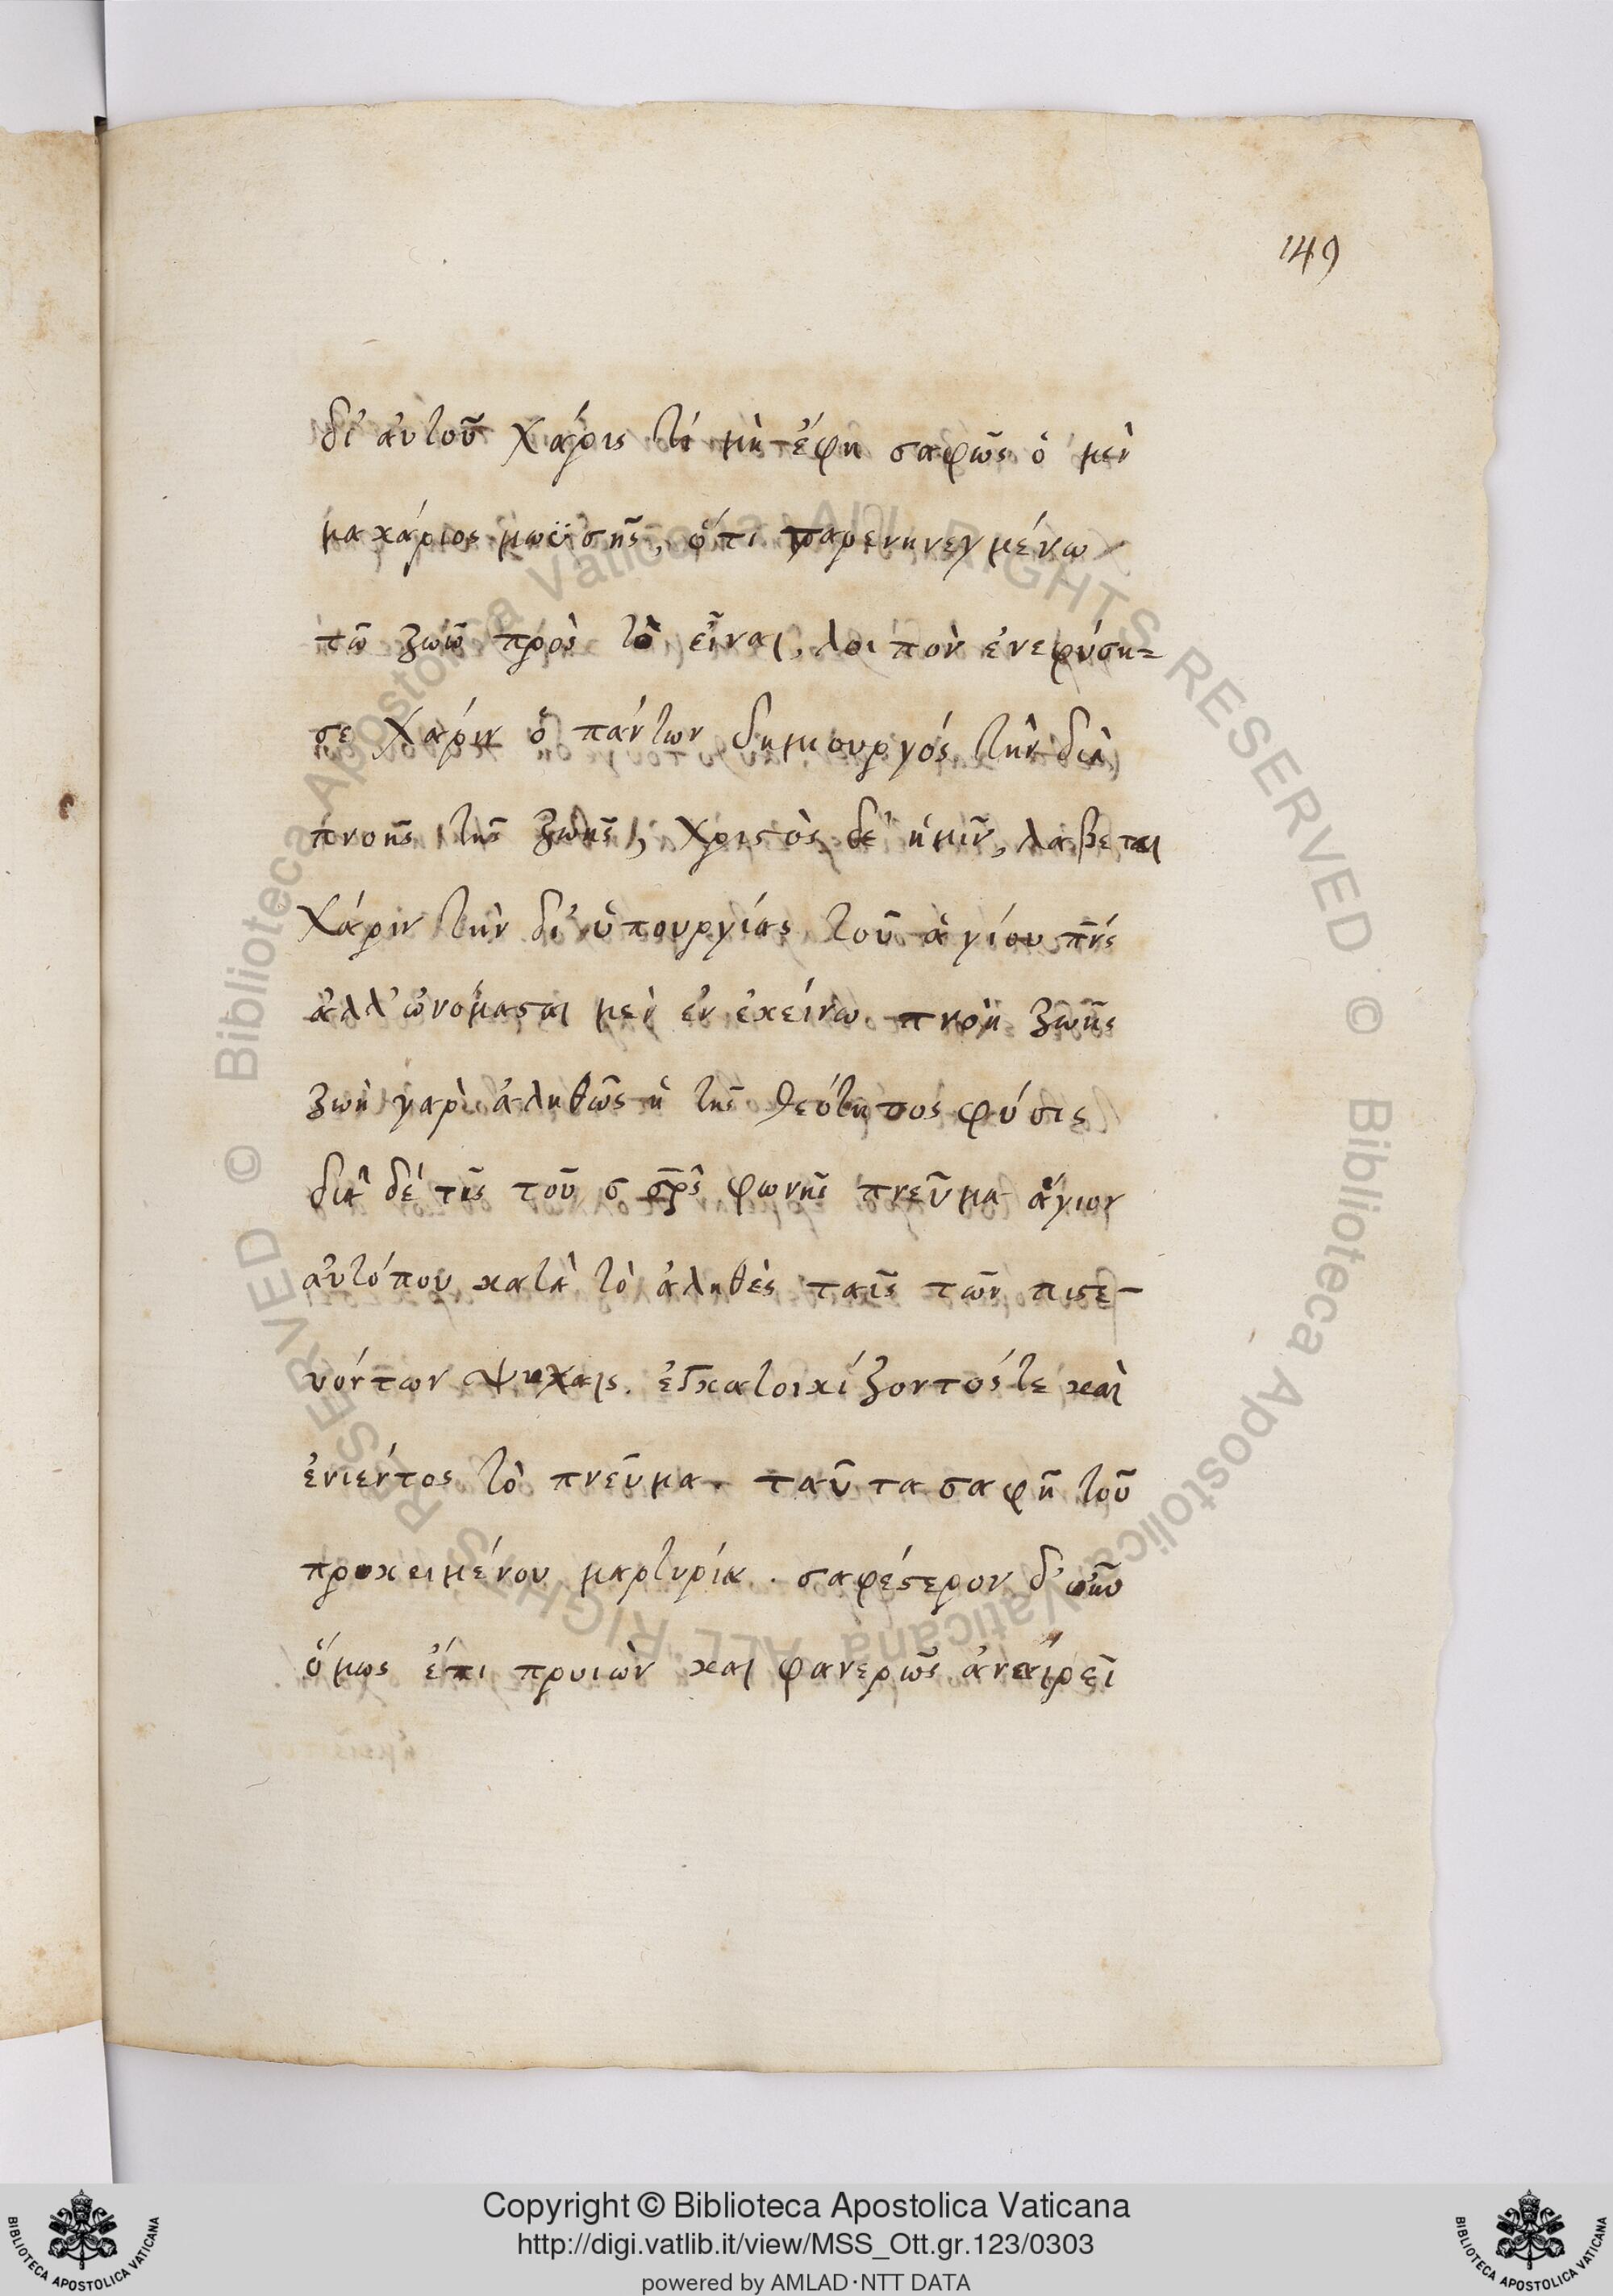 149
δι' αὐτοῦ χάρις τί μὴ ἔφη σαφῶς ὁ μὲν
μακάριος μωϋσῆς, ὅτι παρενηνεγμένω
τῶ ζώω πρὸς τὸ εἶναι, λοιπὸν ἐνεφύση=
σε χάριν ὁ πάντων δημιουργός τὴν διὰ
πνοῆς τῆς ζωῆς, χριστὸς δὲ ἡμῖν, λάβεται
χάριν τὴν δι' ὑπουργίας τοῦ ἁγίου πν̅ς
ἀλλ' ὠνόμασται μὲν ἐν ἐκείνω πνοὴ ζωῆς
ζωὴ γαρ ἀληθῶς ἡ τῆς θεότητος φύσις
διὰ δέ τῆς τοῦ σ σρ̅ς φωνῆς πνεῦμα ἅγιον
αὐτόπου κατὰ τὸ ἀληθὲς ταῖς τῶν πιστε-
υόντων ψυχαῖς. εἰσκατοικίζοντός τε καὶ
ἐνιέντος τὸ πνεῦμα. ταῦτα σαφῆ τοῦ
προκειμένου μαρτυρία. σαφέστερον δ'
ὅμως ἔτι προιὼν καὶ φανερῶς ἀναιρεῖ
Copyright © Biblioteca Apostolica Vaticana
http://digi.vatlib.it/view/MSS_Ott.gr.123/0303
powered by AMLAD·NTT DATA
BIBLIOTECA APOSTOLICA VATICANA
BIBLIOTECA APOSTOLICA VATICANA
© Biblioteca Apostolica Vaticana ALL RIGHTS RESERVED
© Biblioteca Apostolica Vaticana ALL RIGHTS RESERVED